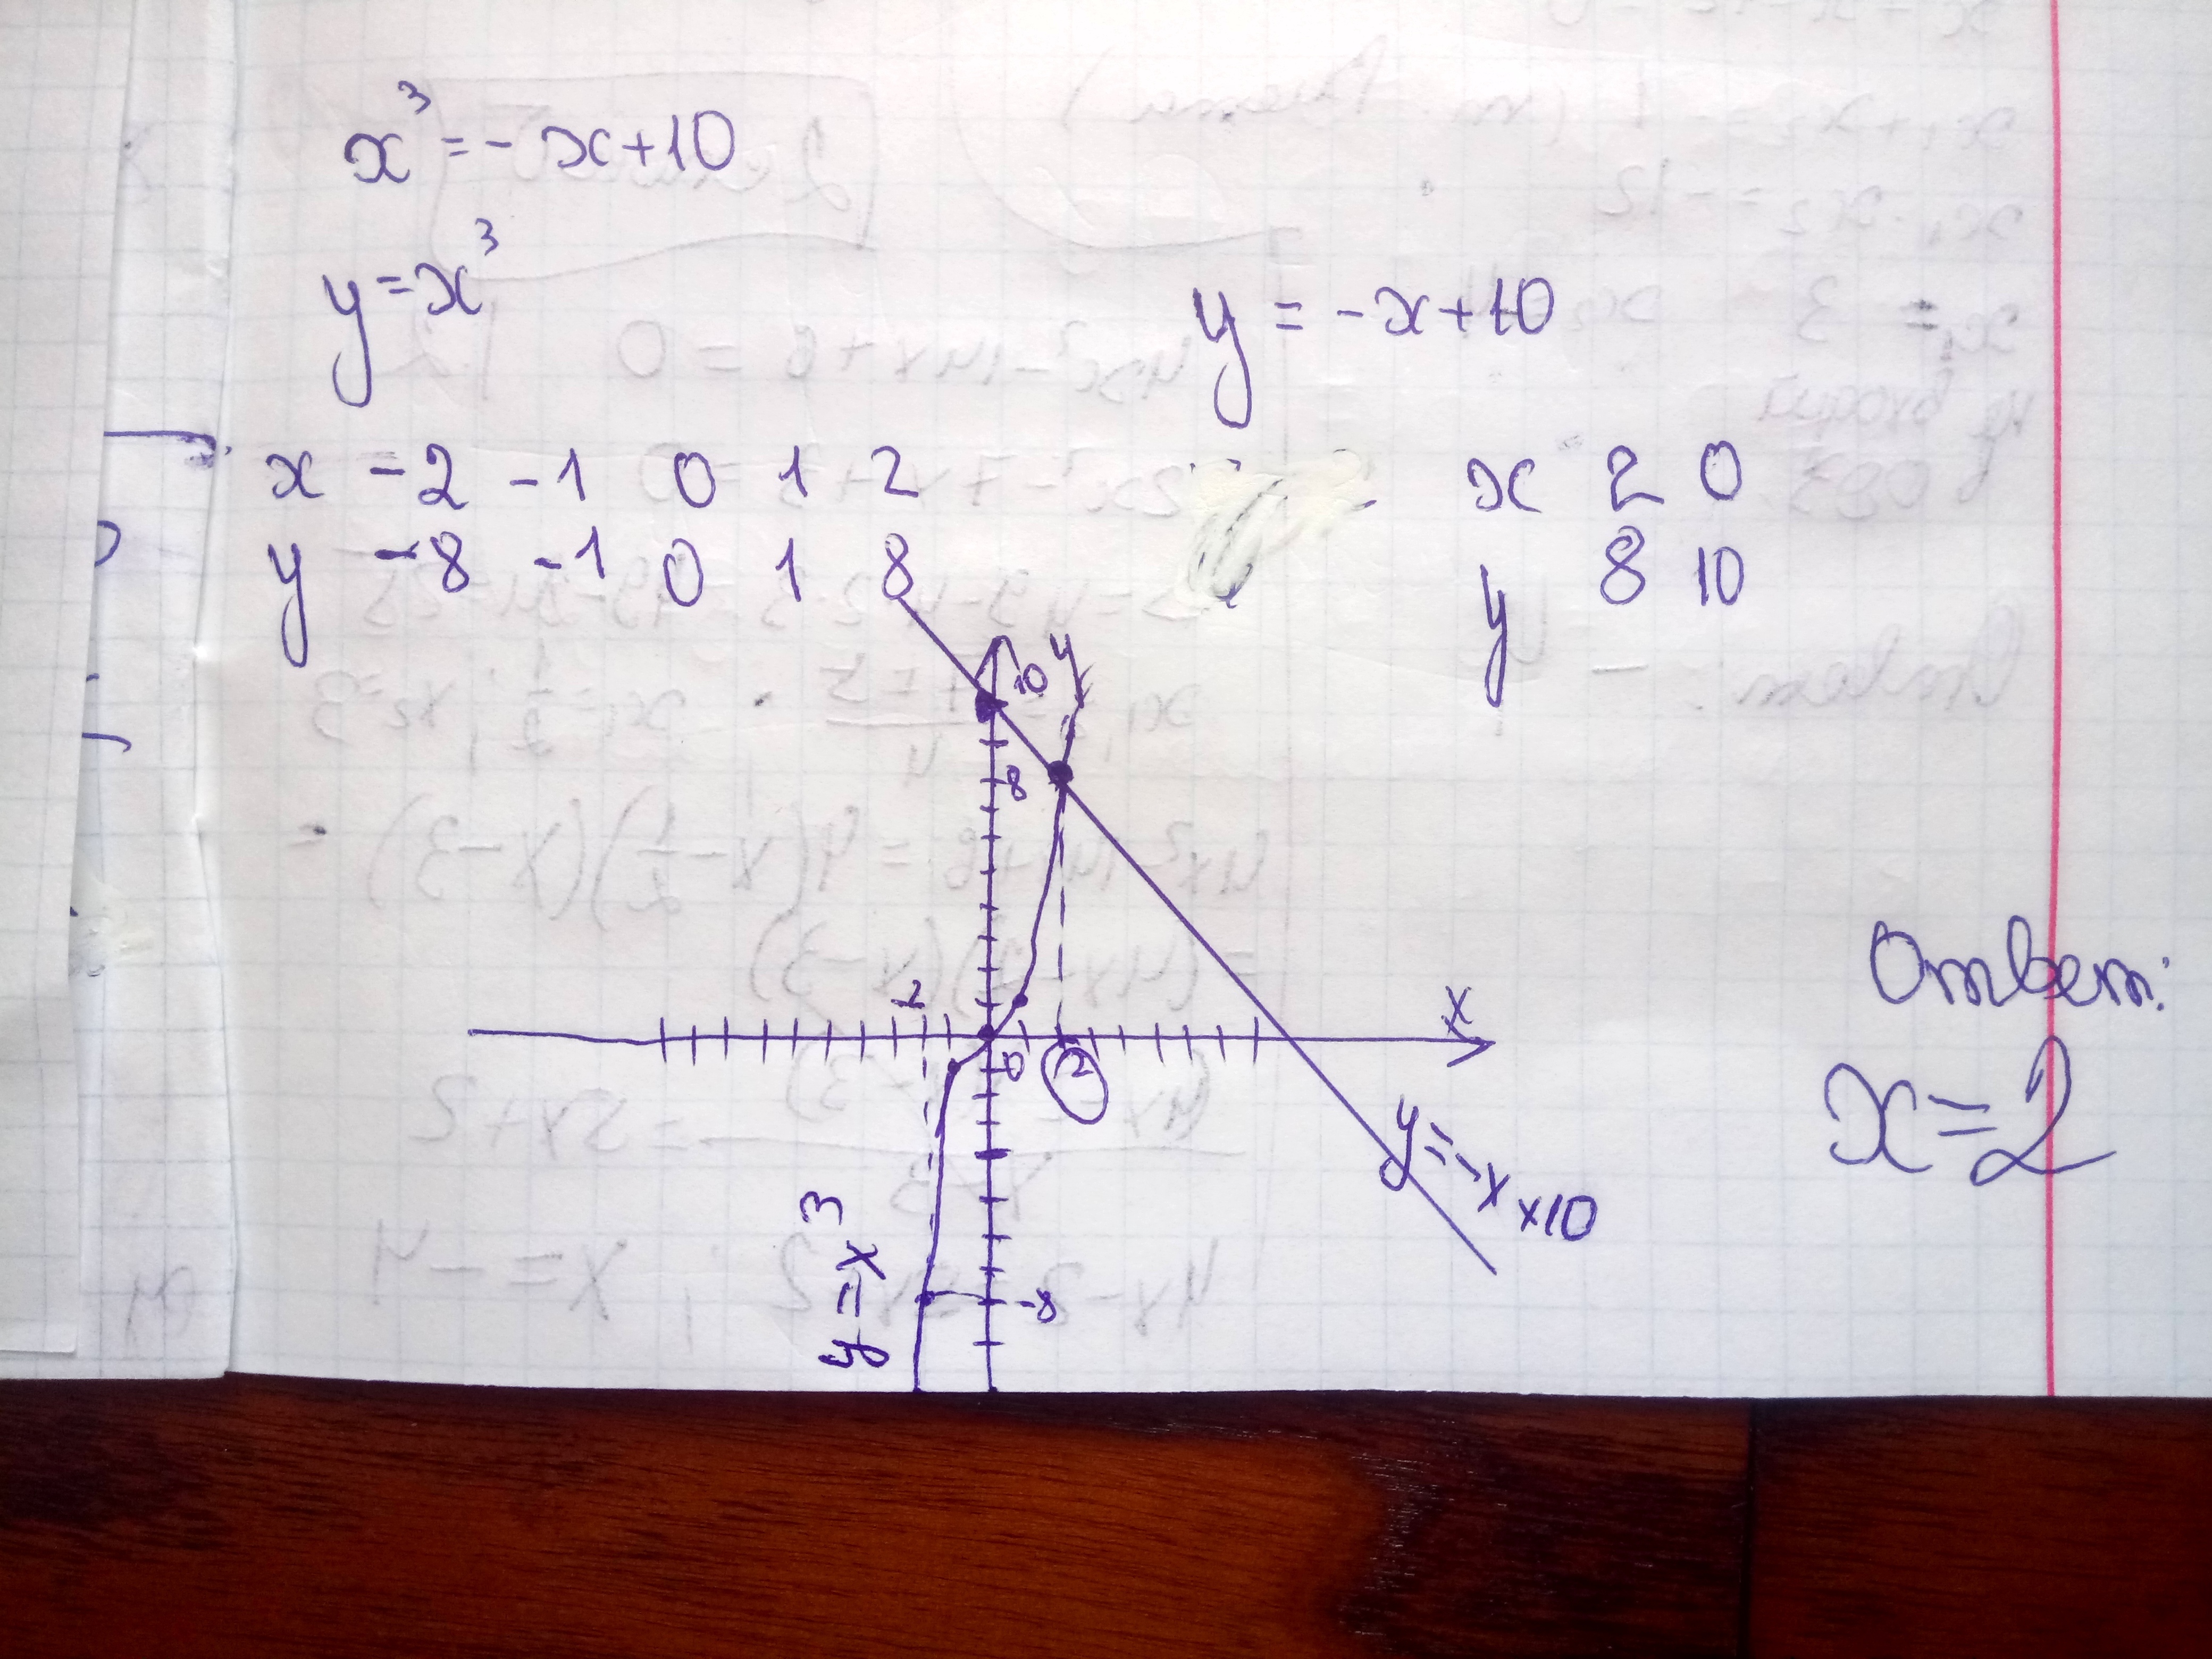 x³ = - x + 10
y = x³
y = -x + 10
x -2 -1 0 1 2
y -8 -1 0 1 8
x 2 0
y 8 10
y
10
8
2
x
0
2
-8
y = x³
y = -x x10
Ответ:
x = 2